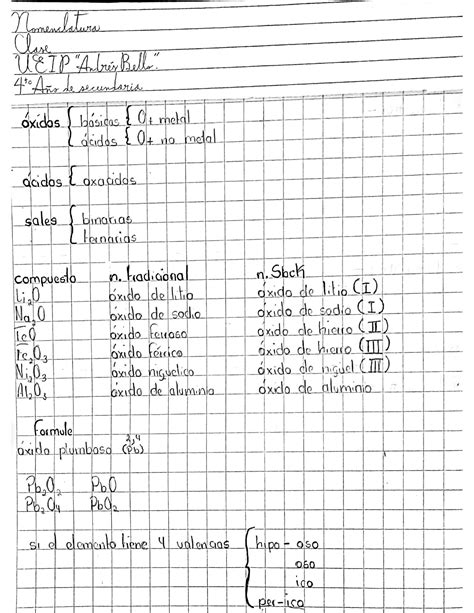 Nomenclatura
Clase
U.E.I.P "Andrés Bello".
4to Año de secundaria
óxidos { básicos { O+ metal
ácidos { O+ no metal
ácidos { oxacidos
sales { binarias
ternarias
compuesto n. tradicional n. Stock
Li2O óxido de litio óxido de litio (I)
Na2O óxido de sodio óxido de sodio (I)
FeO óxido ferroso óxido de hierro (II)
Fe2O3 óxido férrico óxido de hierro (III)
Ni2O3 óxido niquelico óxido de niquel (III)
Al2O3 óxido de aluminio óxido de aluminio
Formule
óxido plumboso (Pb) 2,4
Pb2O2 PbO
Pb2O4 PbO2
si el elemento tiene 4 valencias { hipo - oso
oso
ico
per-ico